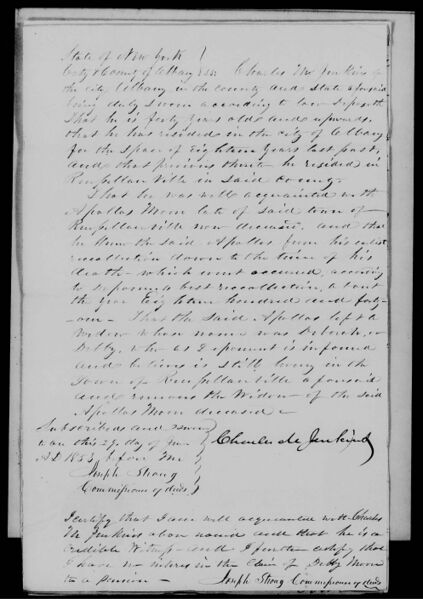 State of New York )
City & County of Albany } ss. Charles M. Jenkins of
the city Albany in the county and State aforesaid
being duly sworn according to law deposeth
that he is forty years old and upwards,
that he has resided in the city of Albany
for the space of Eighteen years last past,
and that previous thereto he resided in
Rensselaerville in said County.
That he was well acquainted with
Apollos Moore late of said town of
Rensselaerville now deceased, and that
he knew the said Apollos from his earliest
recollection down to the time of his
death - which event occurred, according
to deponent's best recollection, about
the year Eighteen hundred and forty-
one - That the said Apollos left a
Widow whose name was Deborah, or
Debby, who as deponent is informed
and believes is still living in the
Town of Rensselaerville aforesaid
and remains the Widow of the said
Apollos Moore deceased -
Subscribed and sworn )
to on this 29 day of
A.D. 1853, before me
Joseph Strong
Commissioner of deeds
Charles M. Jenkins
I certify that I am well acquainted with Charles
M. Jenkins above named and that he is a
credible Witness - and I further certify that
I have no interest in the Claim of Debby Moore
to a Pension - Joseph Strong Commissioner of deeds